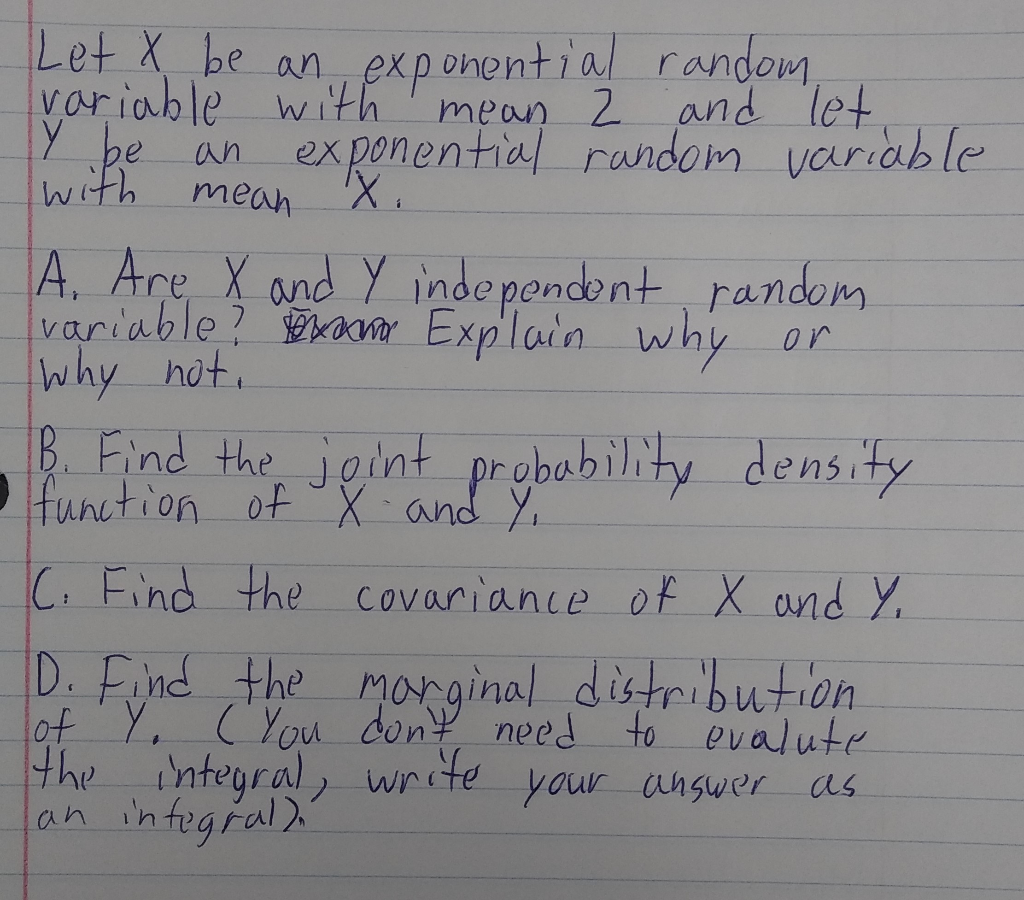 Let X be an exponential random
variable with mean 2 and let
Y be an exponential random variable
with mean X.
A. Are X and Y independent random
variable? Explain why or
why not.
B. Find the joint probability density
function of X and Y.
C. Find the covariance of X and Y.
D. Find the marginal distribution
of Y. (You don't need to evalute
the integral, write your answer as
an integral).